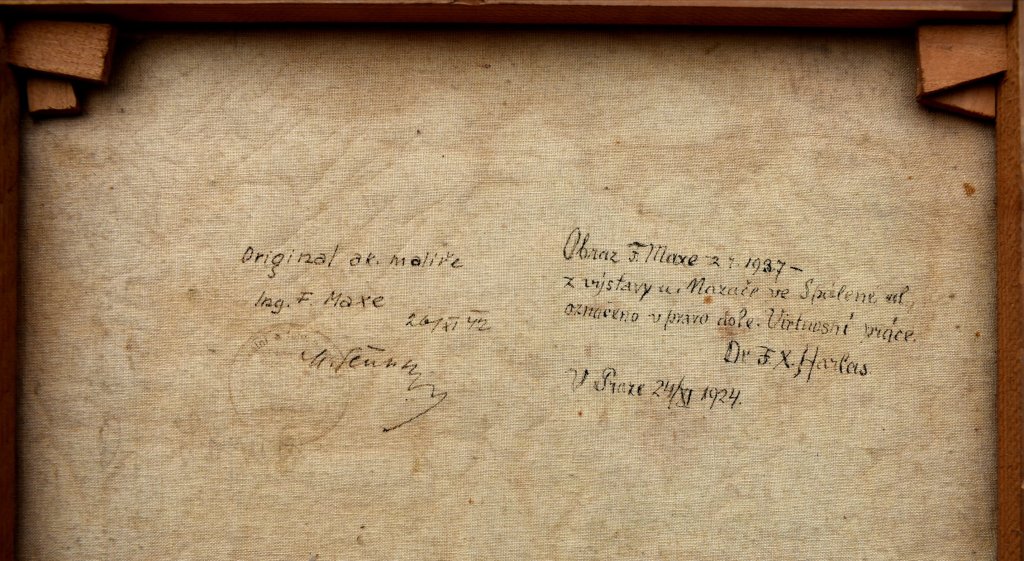 Original ak. malíře
Ing. F. Maxe
26/XI 42
Obraz F. Maxe z r. 1937 –
z výstavy u. Mazače ve Spálené ul,
označeno v pravo dole. Virtuosní práce.
Dr F. X. Harlas
V Praze 24/XI 1924.